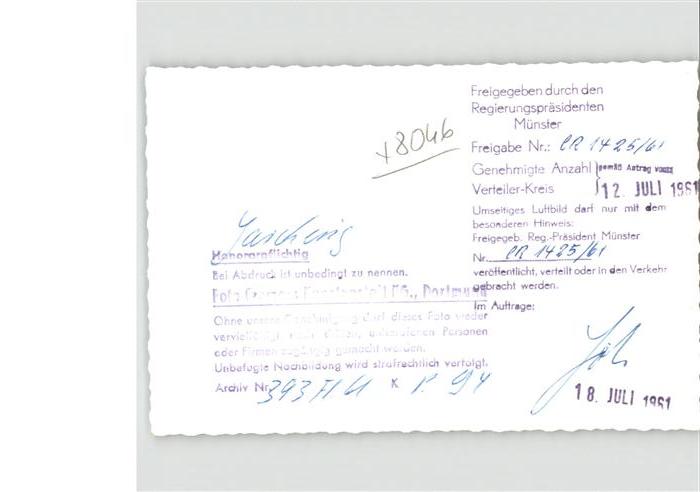 Freigegeben durch den
Regierungspräsidenten
Münster
Freigabe Nr.: CR 1425/61
Genehmigte Anzahl
Verteiler-Kreis
gemäß Antrag vom:
12. JULI 1961
Umseitiges Luftbild darf nur mit dem
besonderen Hinweis:
Freigegeb. Reg.-Präsident Münster
Nr. CR 1425/61
veröffentlicht, verteilt oder in den Verkehr
gebracht werden.
Im Auftrage:
18. JULI 1961
x8046
Honorarpflichtig
Bei Abdruck ist unbedingt zu nennen.
Foto KG., Dortmund
Ohne unsere Genehmigung darf dieses Foto weder
vervielfältigt noch dritten, unberufenen Personen
oder Firmen zugängig gemacht werden.
Unbefugte Nachbildung wird strafrechtlich verfolgt.
Archiv Nr. 393 K P. 94